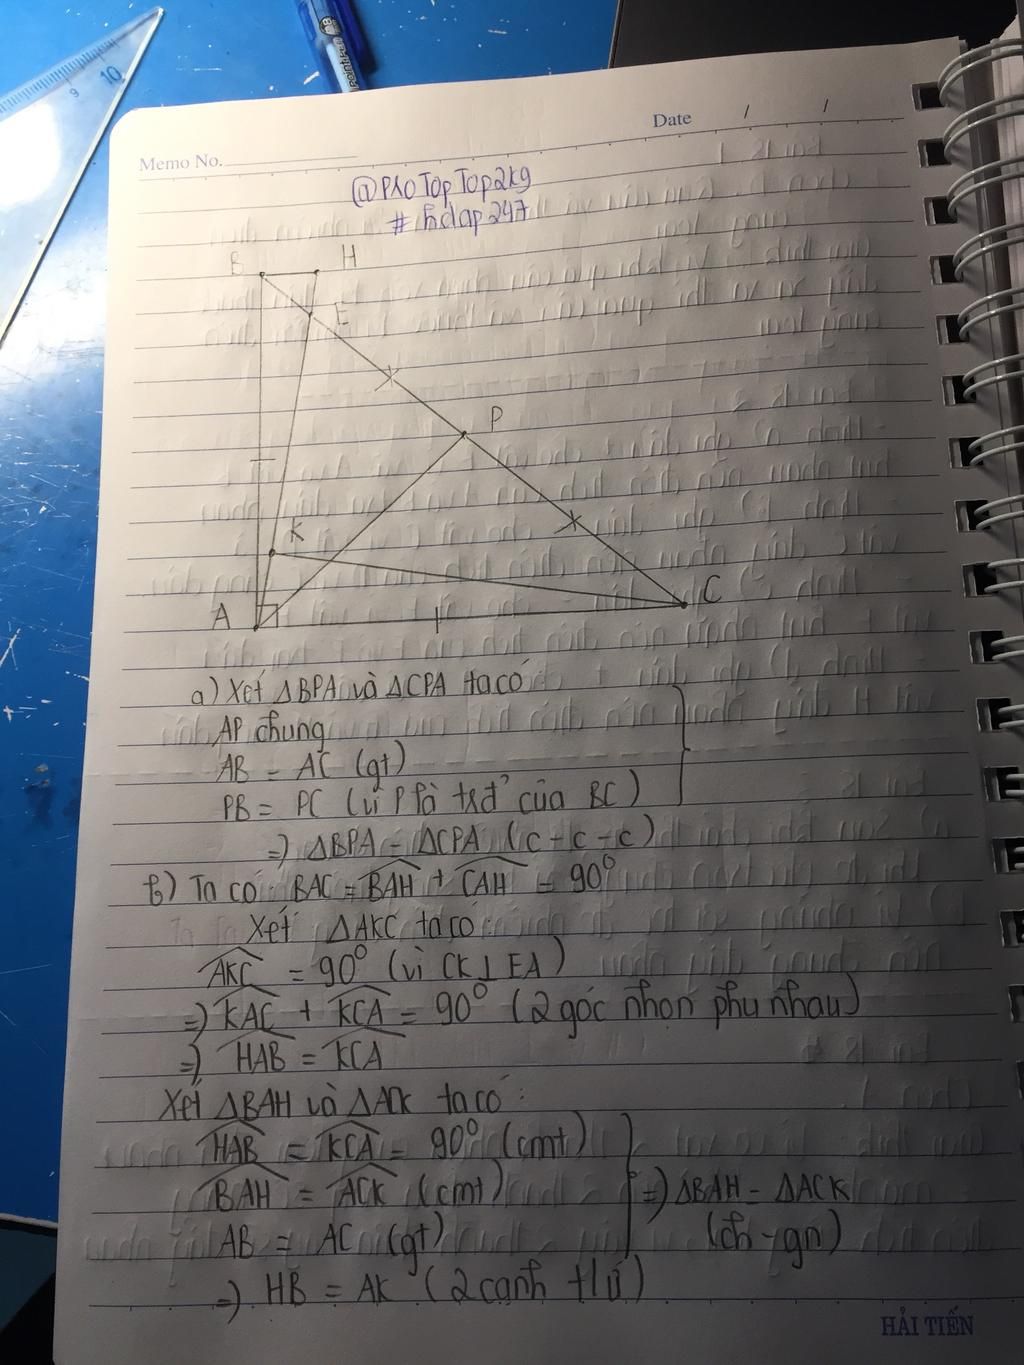 10
9
Memo No.
Date / /
@PROTopTop2k9
# hdap247
B
H
E
P
K
A
C
a) Xét ΔBPA và ΔCPA ta có
AP chung
AB = AC (gt)
PB = PC (vì P là trđ' của BC)
=) ΔBPA = ΔCPA (c - c - c)
b) Ta có: BAC = BAH + CAH = 90°
Xét ΔAKC ta có:
AKC = 90° (vì CK⊥EA)
=) KAC + KCA = 90° (2 góc nhọn phụ nhau)
=) HAB = KCA
Xét ΔBAH và ΔACK ta có:
HAB = KCA = 90° (cmt)
BAH = ACK (cmt) =) ΔBAH = ΔACK
AB = AC (gt) (ch - gn)
=) HB = AK (2 cạnh t/ứ)
HẢI TIẾN